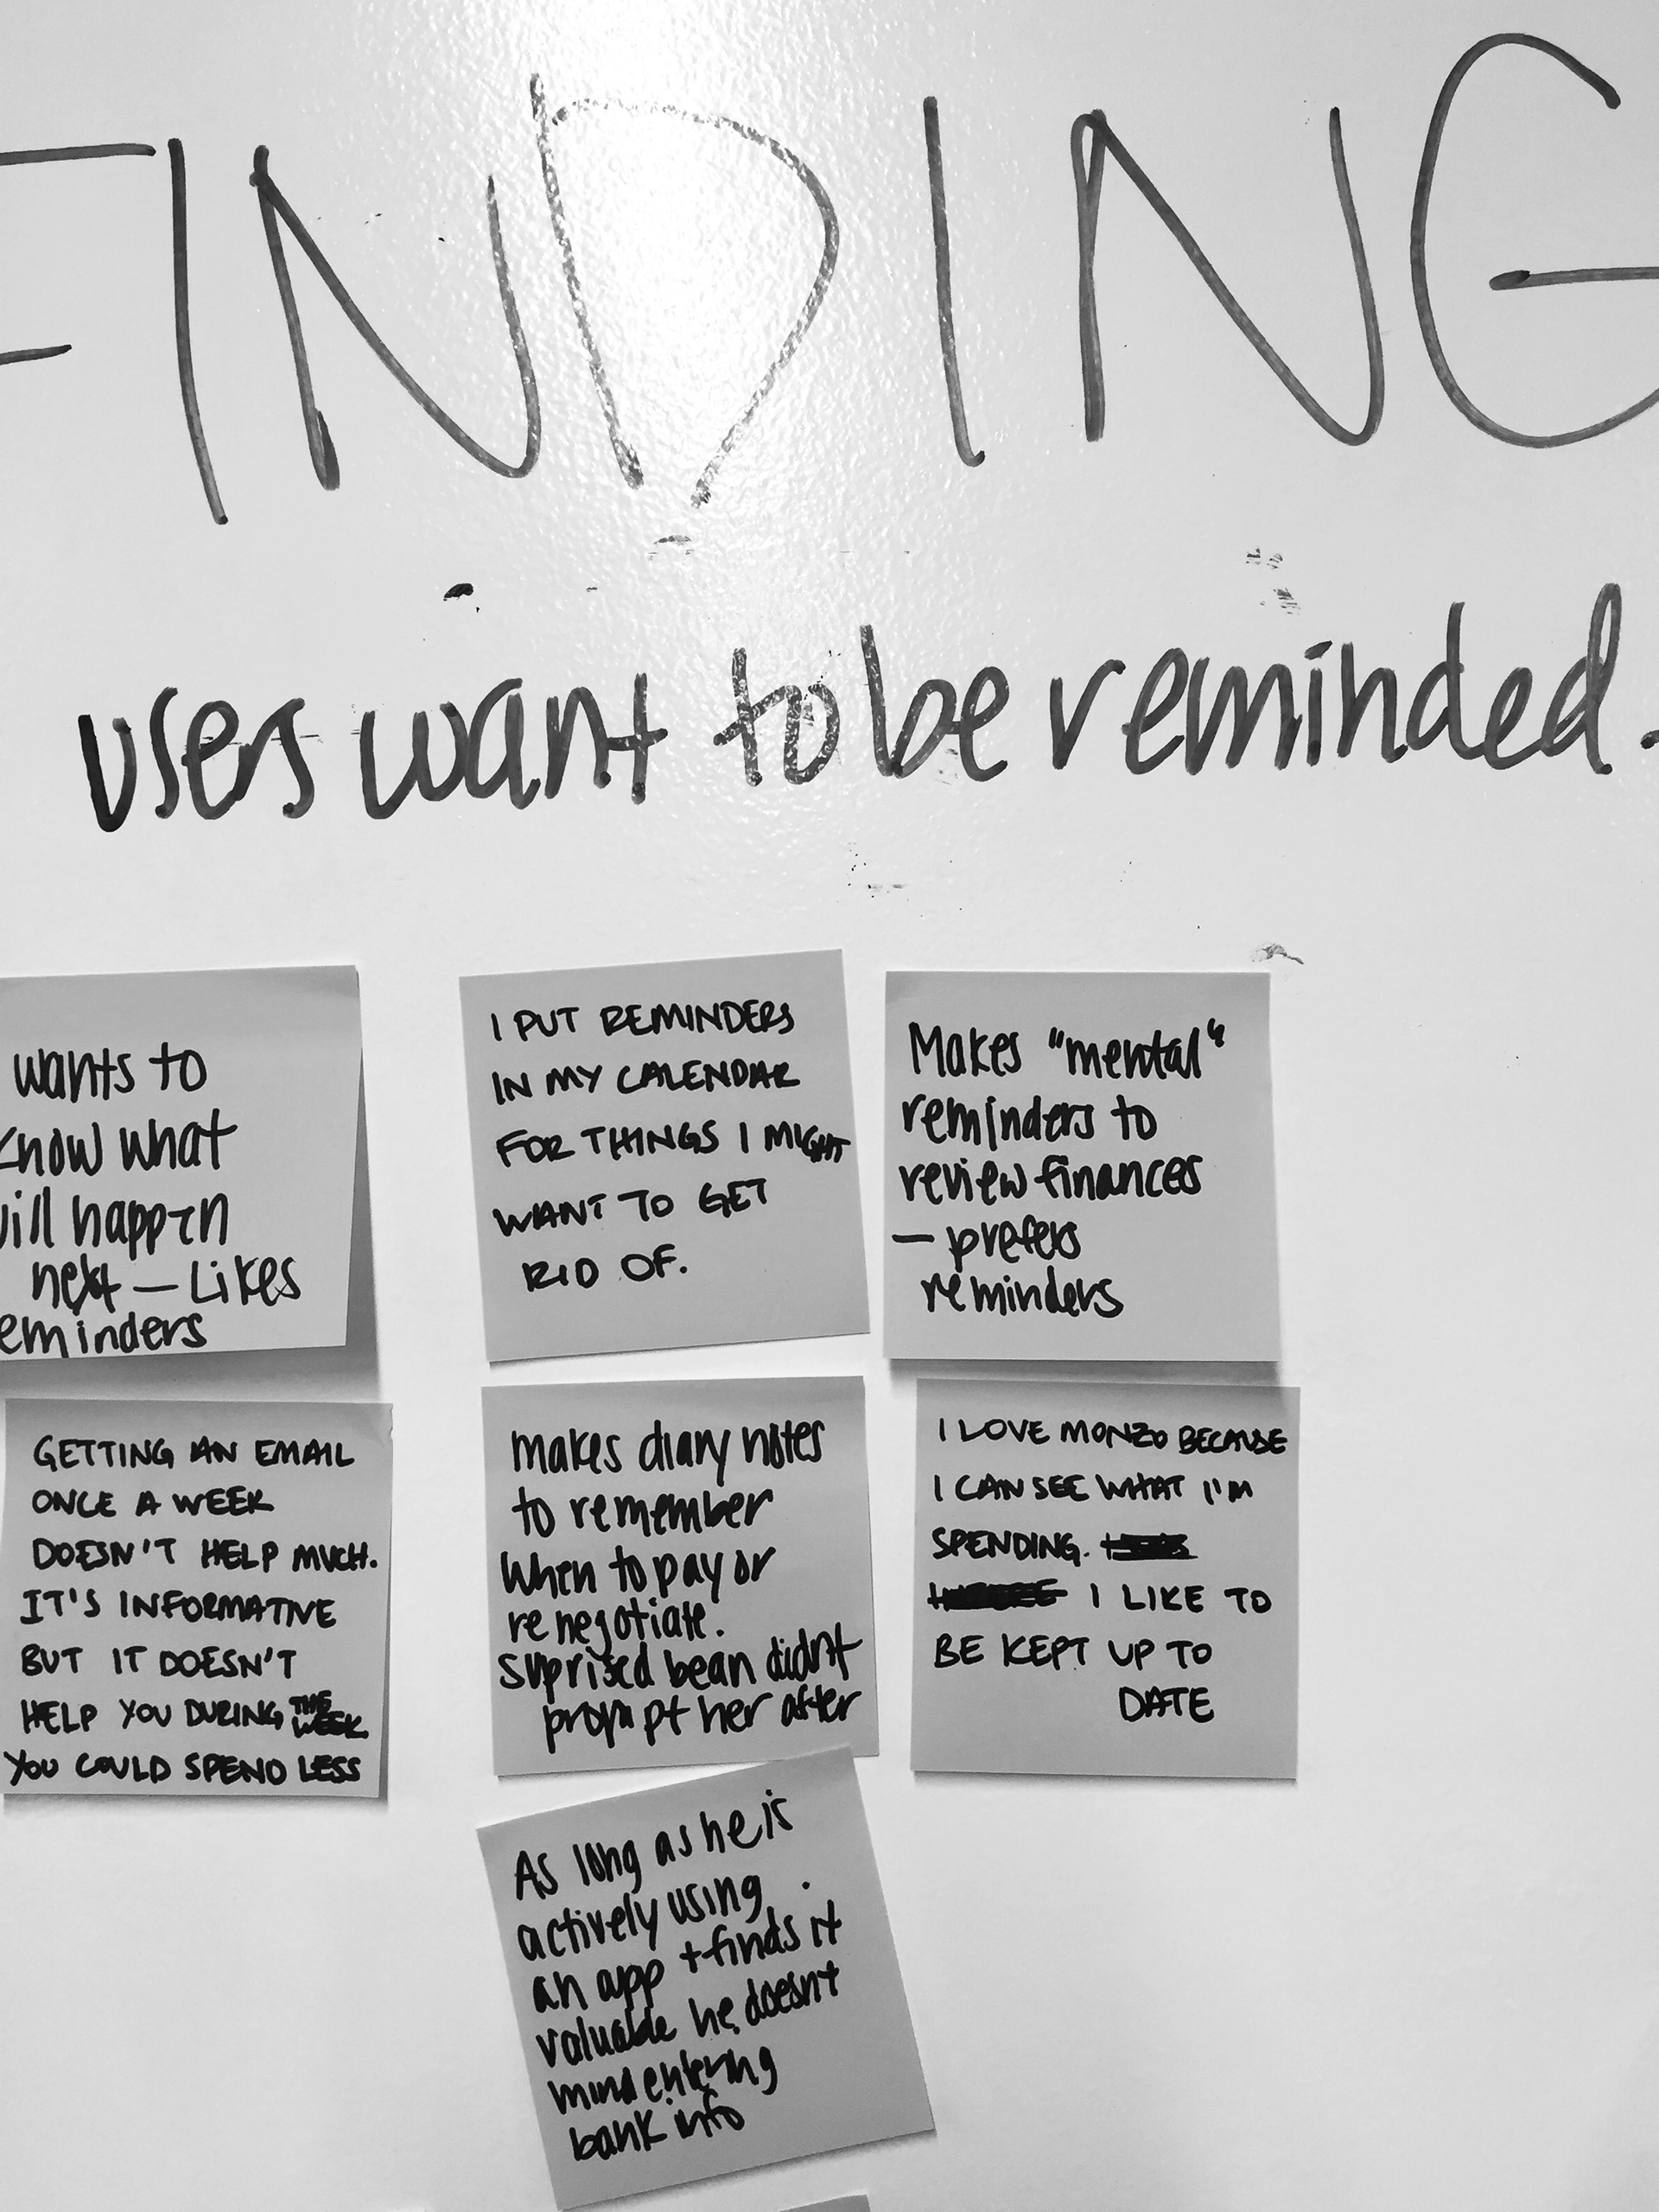 FINDING
users want to be reminded.
wants to
know what
will happen
next — Likes
reminders
I PUT REMINDERS
IN MY CALENDAR
FOR THINGS I MIGHT
WANT TO GET
RID OF.
Makes "mental"
reminders to
review finances
— prefers
reminders
GETTING AN EMAIL
ONCE A WEEK
DOESN'T HELP MUCH.
IT'S INFORMATIVE
BUT IT DOESN'T
HELP YOU DURING THE WEEK
YOU COULD SPEND LESS
makes diary notes
to remember
when to pay or
renegotiate.
suprised bean didnt
prompt her after
I LOVE MONZO BECAUSE
I CAN SEE WHAT I'M
SPENDING.
I LIKE TO
BE KEPT UP TO
DATE
As long as he is
actively using
an app + finds it
valuable he doesnt
mind entering
bank info